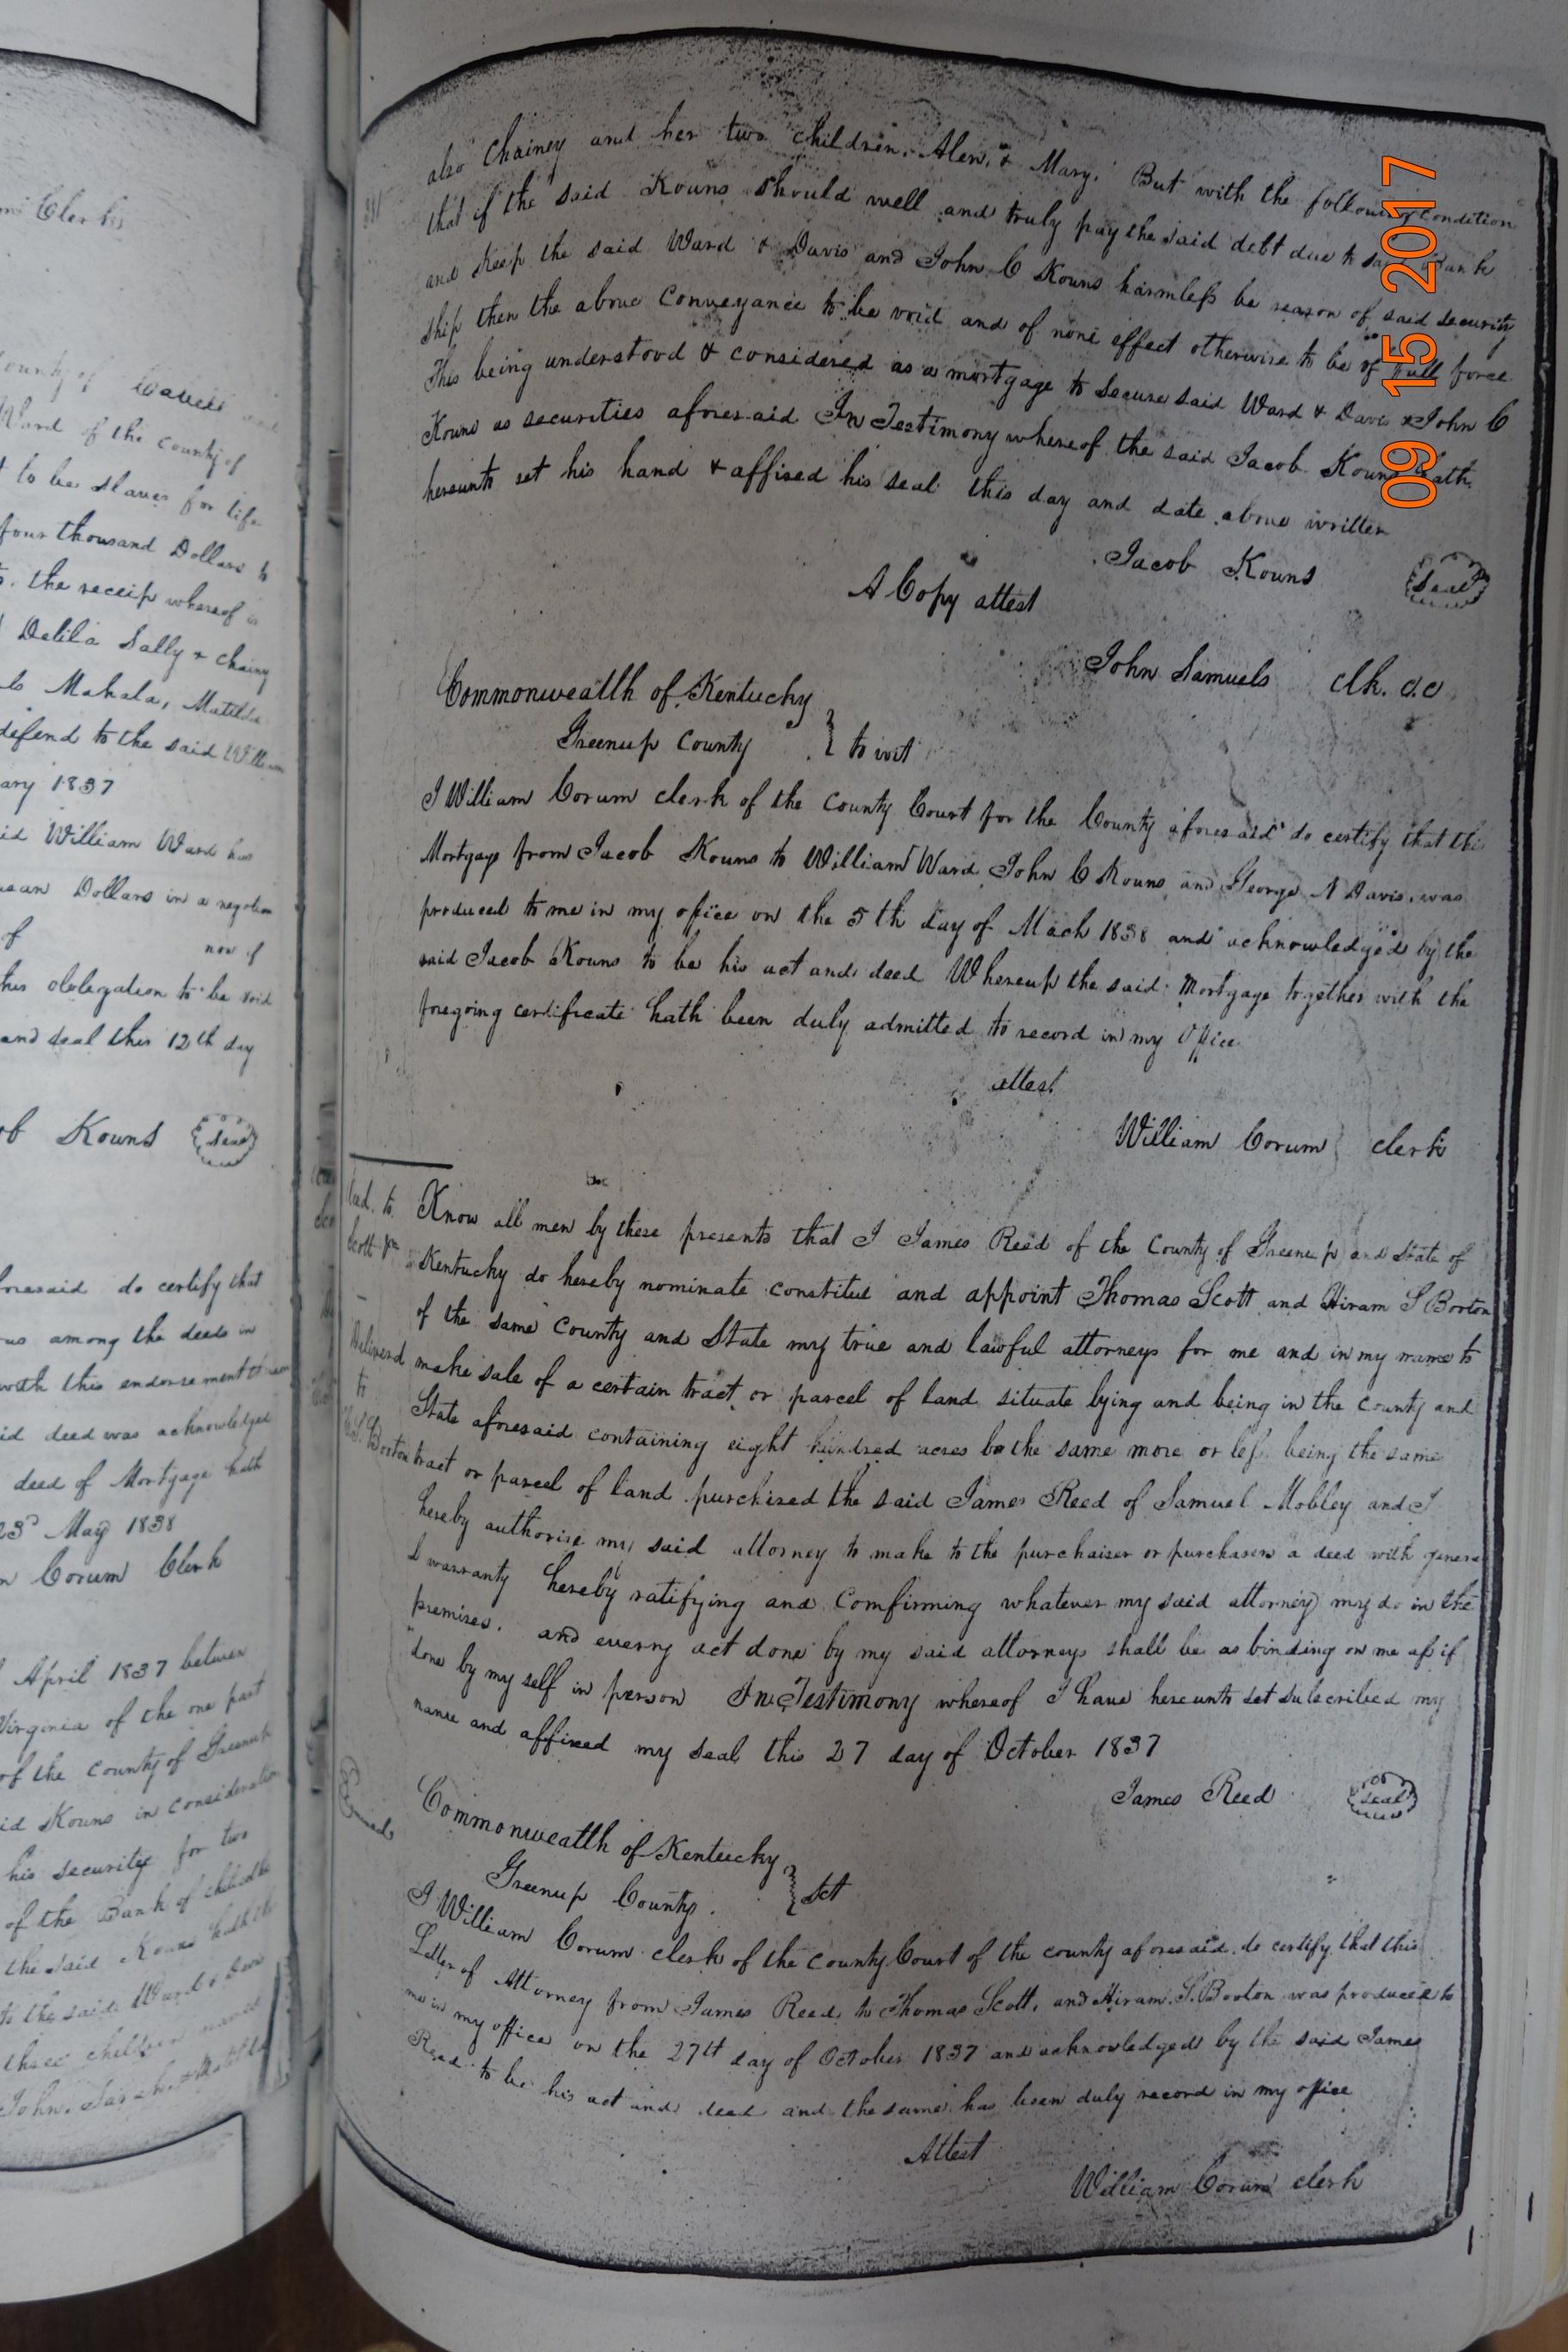 mi Clerks
County of
Ward of the county of
to be slaves for life
four thousand Dollars to
the receip whereof is
Delila Sally & Chainy
Mahala, Matilda
defend to the said William
ary 1837
id William Ward has
usan Dollars in a negotia
of now if
his obblegation to be void
and seal this 12th day
ob Kouns Seal
foresaid do certify that
us among the deeds in
with this endorsement
id deed was acknowledged
deed of Mortgage hath
23d May 1838
m Corum Clerk
April 1837 between
Virginia of the one part
of the county of Greenup
id Kouns in consideration
his security for two
of the Bank of
the said Kouns hath
to the said Ward &
three children named
John, Sarah & Matilda
also Chainey and her two children. Alen, & Mary. But with the following condition
that if the said Kouns should well and truly pay the said debt due to said Bank
and Keep the said Ward & Davis and John C Kouns harmless be reason of said security
ship then the above Conveyance to be void and of none effect otherwise to be of full force
This being understood & considered as a mortgage to secure said Ward & Davis & John C
Kouns as securities aforesaid In Testimony whereof the said Jacob Kouns hath
hereunto set his hand & affixed his seal this day and date above written
Jacob Kouns Seal
A Copy attest
John Samuels Clk. C.C
Commonwealth of Kentucky
Greenup County } to wit
I William Corum clerk of the County Court for the County aforesaid do certify that this
Mortgage from Jacob Kouns to William Ward John C Kouns and George N Davis, was
produced to me in my office on the 5th day of Mach 1838 and acknowledged by the
said Jacob Kouns to be his act and deed Whereup the said Mortgage together with the
foregoing certificate hath been duly admitted to record in my Office
attest
William Corum clerk
Know all men by these presents that I James Reed of the County of Greenup and State of
Kentucky do hereby nominate constitut and appoint Thomas Scott and Hiram S Borton
of the same County and State my true and lawful attorneys for me and in my name to
make sale of a certain tract or parcel of land situate lying and being in the county and
State aforesaid containing eight hundred acres be the same more or less being the same
tract or parcel of land purchised the said James Reed of Samuel Mobley and I
hereby authorise my said attorney to make to the purchaiser or purchasers a deed with genera
l warranty hereby ratifying and comfirming whatever my said attorney my do in the
premises. and everny act done by my said attorneys shall be as binding on me as if
done by my self in person In Testimony whereof I have hereunto set subscribed my
name and affixed my seal this 27 day of October 1837
James Reed Seal
Commonwealth of Kentucky
Greenup County. } Sct
I William Corum clerk of the County Court of the county aforesaid do certify that this
Letter of Attorney from James Reed, to Thomas Scott, and Hiram S. Borton was produced to
me in my office on the 27th day of October 1837 and acknowledged by the said James
Reed to be his act and deed and the same has been duly record in my office
Attest
William Corum clerk
to
Scott &c
Deliverd
to
H.S. Borton
Examd
09 15 2017